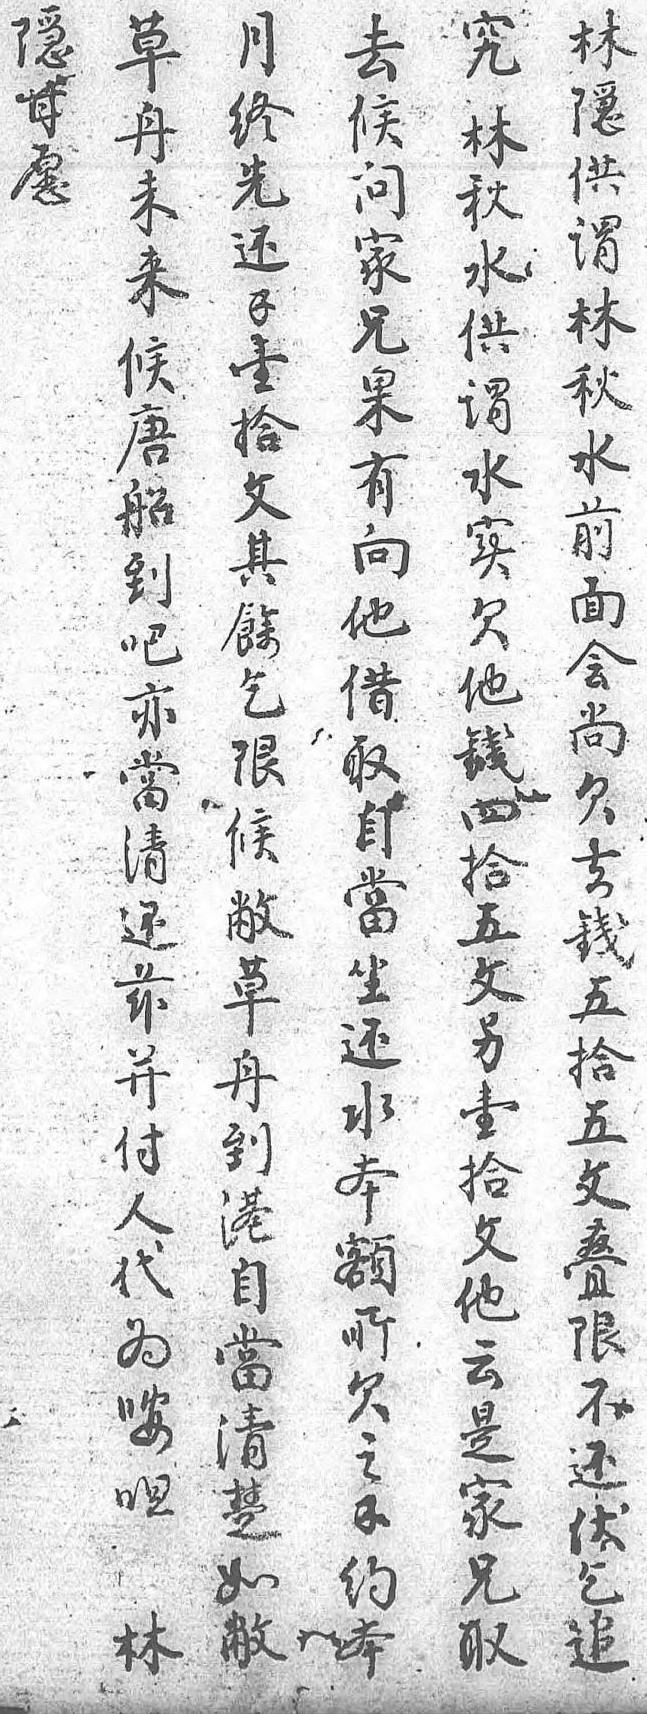 林隱供謂林秋水前面会尚欠去錢五拾五文疊限不还伏乞追
究林秋水供謂水实欠他錢四拾五文另壹拾文他云是家兄取
去候问家兄果有向他借取自當坐还水本額所欠之艮約本
月終先还艮壹拾文其餘乞限候敝草舟到港自當清楚如敝
草舟未来候唐船到吧亦當清还茲并付人代为唛呾 林
隱甘愿